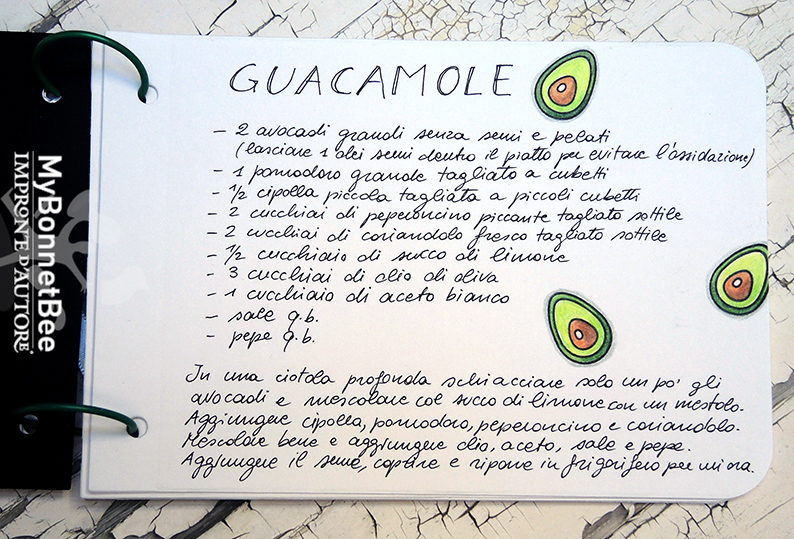 MyBonnetBee
IMPRONTE D'AUTORE®
GUACAMOLE
- 2 avocadi grandi senza semi e pelati
(lasciare 1 dei semi dentro il piatto per evitare l'ossidazione)
- 1 pomodoro grande tagliato a cubetti
- 1/2 cipolla piccola tagliata a piccoli cubetti
- 2 cucchiai di peperoncino piccante tagliato sottile
- 2 cucchiai di coriandolo fresco tagliato sottile
- 1/2 cucchiaio di succo di limone
- 3 cucchiai di olio di oliva
- 1 cucchiaio di aceto bianco
- sale q.b.
- pepe q.b.
In una ciotola profonda schiacciare solo un po' gli
avocadi e mescolare col succo di limone con un mestolo.
Aggiungere cipolla, pomodoro, peperoncino e coriandolo.
Mescolare bene e aggiungere olio, aceto, sale e pepe.
Aggiungere il seme, coprire e riporre in frigorifero per un'ora.